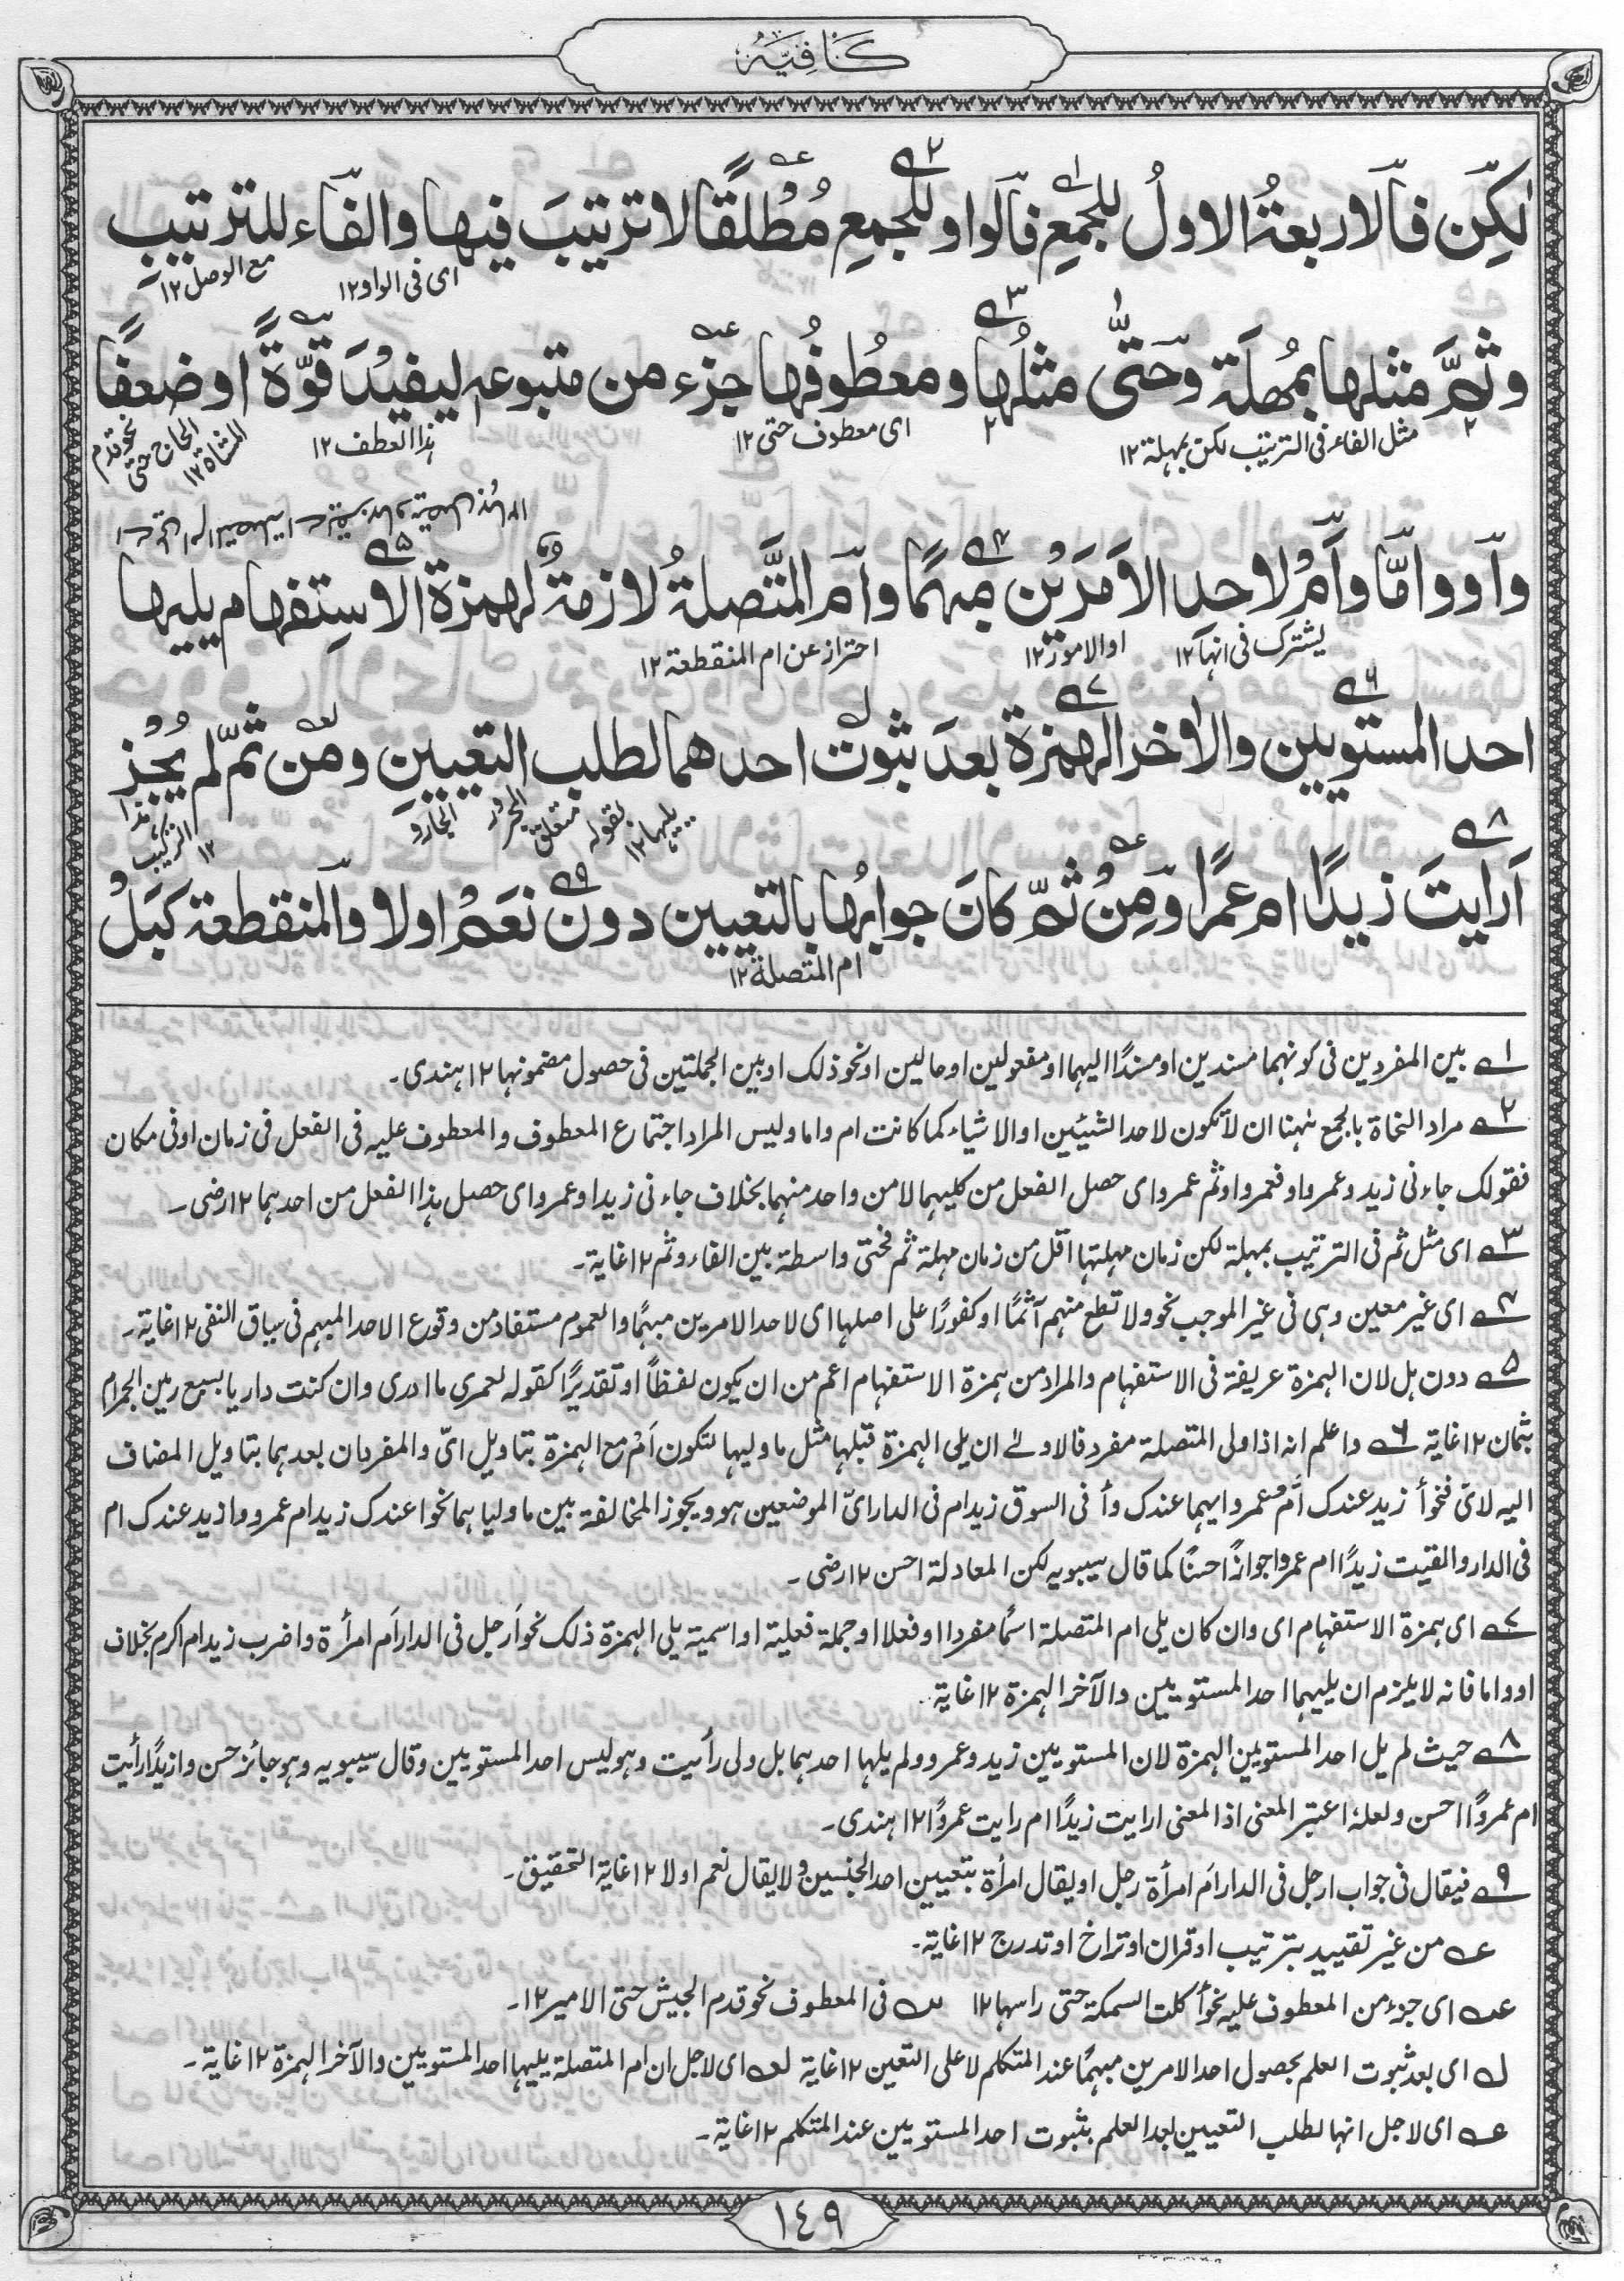 كَافِيَه
لٰكِن فالاربعةُ الاولُ للجمعِ فالواو للجمعِ مُطْلقًا لا ترتيبَ فيها والفاء للترتيب
اى فى الواو١٢
مع الوصل١٢
وثمَّ مثلها بمُهلَة وحَتّٰى مثلُها ومعطُوفُها جزء من متبوعہ ليفيْدَ قوّةً اوضعفًا
مثل الفاء فى الترتيب لكن بمهلة١٢
اى معطوف حتى١٢
هذا العطف١٢
نحو قدم الحاج حتى المشاة١٢
واَو واِمّا واَمْ لاحد الاَمرَيْن مبهمًا واَم المتَّصلةُ لازمةٌ لهمزة الاستِفهام يليها
يشترك فى انها١٢
او الامور١٢
احتراز عن ام المنقطعة١٢
احد المستويين والاٰخر الهمزة بعدَ ثبوت احدهما لطلب التعيين ومن ثمّ لم يُجْز
يليها١٢
الجار و المجرور متعلق بقوله
هذا التركيب١٢
اَرايتَ زيدًا ام عمرًا ومِنْ ثمّ كانَ جوابُها بالتعيين دون نعَمْ اولا والمنقطعة كَبَلْ
ام المتصلة١٢
١ بين المفردين فى كونهما مسندين او مسندًا اليهما او مفعولين او حالين او نحو ذلك او بين الجملتين فى حصول مضمونها ١٢ هندى۔
٢ مراد النحاة بالجمع ههنا ان لا تكون لاحد الشيئين او الاشياء كما كانت ام واما وليس المراد اجتماع المعطوف والمعطوف عليه فى الفعل فى زمان او فى مكان
فقولك جاءنى زيد وعمرو او فعمرو او ثم عمرو اى حصل الفعل من كليهما لا من واحد منهما بخلاف جاءنى زيد او عمرو اى حصل هذا الفعل من احدهما ١٢ رضى۔
٣ اى مثل ثم فى الترتيب بمهلة لكن زمان مهلتها اقل من زمان مهلة ثم فحتى واسطة بين الفاء وثم ١٢ غاية۔
٤ اى غير معين وهى فى غير الموجب نحو ولا تطع منهم آثمًا او كفورًا على اصلها اى لاحد الامرين مبهمًا والعموم مستفاد من وقوع الاحد المبهم فى سياق النفى ١٢ غاية۔
٥ دون هل لان الهمزة عريقة فى الاستفهام والمراد من همزة الاستفهام اعم من ان يكون لفظًا او تقديرًا كقوله لعمرى ما ادرى وان كنت داريا بسبع رمين الجرام
بثمان ١٢ غاية ٦ واعلم انه اذا ولى المتصلة مفرد فالاولٰى ان يلى الهمزة قبلها مثل ما وليها لتكون اَمْ مع الهمزة بتاويل اىّ والمفردان بعدهما بتاويل المضاف
اليه لاىّ فنحو أ زيد عندك اَم عمرو ايهما عندك و أ فى السوق زيد ام فى الدار اىّ الموضعين هو ويجوز المخالفة بين ما وليا هما نحو ا عندك زيد ام عمرو و ا زيد عندك ام
فى الدار و القيت زيدًا ام عمرو جوازًا حسنًا كما قال سيبويه لكن المعادلة احسن ١٢ رضى۔
٧ اى همزة الاستفهام اى وان كان يلى ام المتصلة اسمًا مفردا او فعلا او جملة فعلية او اسمية يلى الهمزة ذلك نحو اَرجل فى الدار اَم امرأة و اضرب زيد ام اكرم بخلاف
او و اما فانه لا يلزم ان يليهما احد المستويين والآخر الهمزة ١٢ غاية۔
٨ حيث لم يل احد المستويين الهمزة لان المستويين زيد وعمرو ولم يلها احدهما بل ولى رأيت وهو ليس احد المستويين وقال سيبويه وهو جائز حسن و ازيدًا رأيت
ام عمروًا احسن ولعله اعتبر المعنى اذ المعنى ارايت زيدًا ام رايت عمروًا ١٢ هندى۔
٩ فيقال فى جواب ارجل فى الدار اَم امرأة رجل او يقال امرأة بتعيين احد الجنسين ولا يقال نعم او لا ١٢ غاية التحقيق۔
عه من غير تقييد بترتيب او قران او تراخ او تدرج ١٢ غاية۔
عه اى جزء من المعطوف عليه نحو أكلت السمكة حتى راسها ١٢ سه فى المعطوف نحو قدم الجيش حتى الامير ١٢۔
ل اى بعد ثبوت العلم بحصول احد الامرين مبهمًا عند المتكلم لا على التعين ١٢ غاية لعه اى لاجل ان ام المتصلة يليها احد المستويين والآخر الهمزة ١٢ غاية۔
عه اى لاجل انها لطلب التعيين بعد العلم بثبوت احد المستويين عند المتكلم ١٢ غاية۔
١٤٩